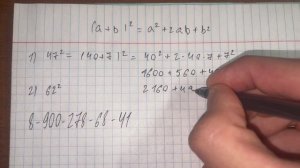 (a+b)² = a²+2ab+b²
1) 47² = (40+7)² = 40²+2·40·7+7²
1600+560+4
2) 62²
2160+4
8-900-278-68-41